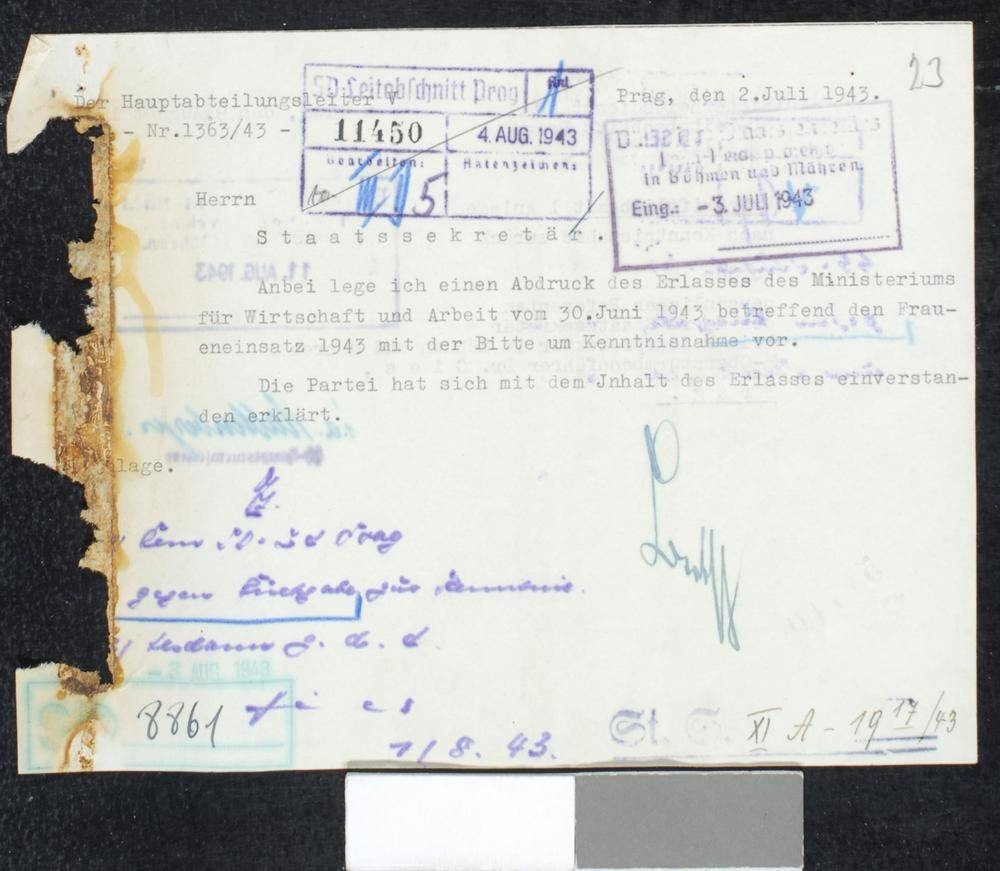 23
Der Hauptabteilungsleiter V
- Nr.1363/43 -
SD-Leitabschnitt Prag
11450
4. AUG. 1943
bearbeitet:
Aktenzeichen:
III D 5
Prag, den 2.Juli 1943.
in Böhmen und Mähren.
Eing.: -3. JULI 1943
Herrn
Staatssekretär.
Anbei lege ich einen Abdruck des Erlasses des Ministeriums
für Wirtschaft und Arbeit vom 30.Juni 1943 betreffend den Frau-
eneinsatz 1943 mit der Bitte um Kenntnisnahme vor.
Die Partei hat sich mit dem Jnhalt des Erlasses einverstan-
den erklärt.
lage.
dem SD-LA Prag
gegen Rückgabe zur Kenntnis.
AUG. 1943
8861
1/8. 43.
St. S. XI A - 19 17/43